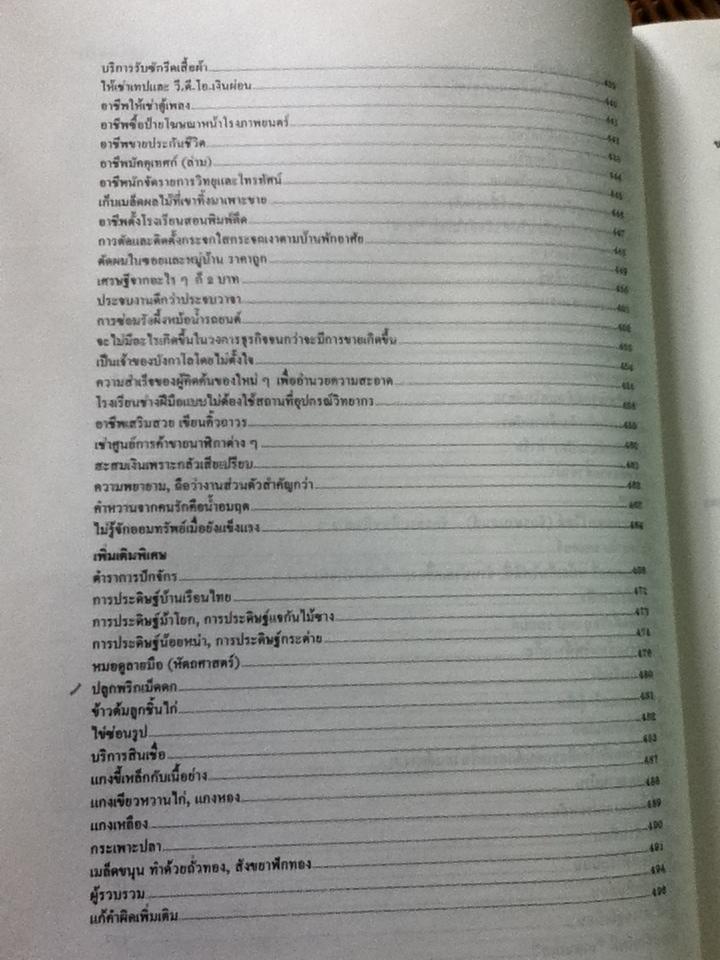 บริการรับซักรีดเสื้อผ้า
ให้เช่าเทปและ วี.ดี.โอ.เงินผ่อน 439
อาชีพให้เช่าตู้เพลง 440
อาชีพซื้อป้ายโฆษณาหน้าโรงภาพยนตร์ 441
อาชีพขายประกันชีวิต
อาชีพมัคคุเทศก์ (ล่าม)
อาชีพนักจัดรายการวิทยุและโทรทัศน์ 444
เก็บเมล็ดผลไม้ที่เขาทิ้งมาเพาะขาย 445
อาชีพตั้งโรงเรียนสอนพิมพ์ดีด 446
การตัดและติดตั้งกระจกใสกระจกเงาตามบ้านพักอาศัย 447
ตัดผมในซอยและหมู่บ้าน ราคาถูก 448
เศรษฐีจากอะไร ๆ ก็ ๑ บาท 449
ประจบงานดีกว่าประจบวาจา
การซ่อมรังผึ้งหม้อน้ำรถยนต์
จะไม่มีอะไรเกิดขึ้นในวงการธุรกิจจนกว่าจะมีการขายเกิดขึ้น
เป็นเจ้าของบังกาโลโดยไม่ตั้งใจ
ความสำเร็จของผู้คิดค้นของใหม่ ๆ เพื่ออำนวยความสะอาด
โรงเรียนช่างฝีมือแบบไม่ต้องใช้สถานที่อุปกรณ์วิทยากร
อาชีพเสริมสวย เขียนคิ้วถาวร
เช่าศูนย์การค้าขายนาฬิกาต่าง ๆ
สะสมเงินเพราะกลัวเสียเปรียบ
ความพยายาม, ถือว่างานส่วนตัวสำคัญกว่า 462
คำหวานจากคนรักคือน้ำอมฤต
ไม่รู้จักออมทรัพย์เมื่อยังแข็งแรง 464
เพิ่มเติมพิเศษ
ตำราการปักจักร
การประดิษฐ์บ้านเรือนไทย 472
การประดิษฐ์ม้าโยก, การประดิษฐ์แจกันไม้ซาง 473
การประดิษฐ์น้อยหน่า, การประดิษฐ์กระต่าย 474
หมอดูลายมือ (หัตถศาสตร์) 476
ปลูกพริกเม็ดดก 480
ข้าวต้มลูกชิ้นไก่ 481
ไข่ซ่อนรูป 482
บริการสินเชื่อ 483
แกงขี้เหล็กกับเนื้อย่าง 487
แกงเขียวหวานไก่, แกงหอง 488
แกงเหลือง 489
กระเพาะปลา 490
เมล็ดขนุน ทำด้วยถั่วทอง, สังขยาฟักทอง 491
ผู้รวบรวม 494
แก้คำผิดเพิ่มเติม 496